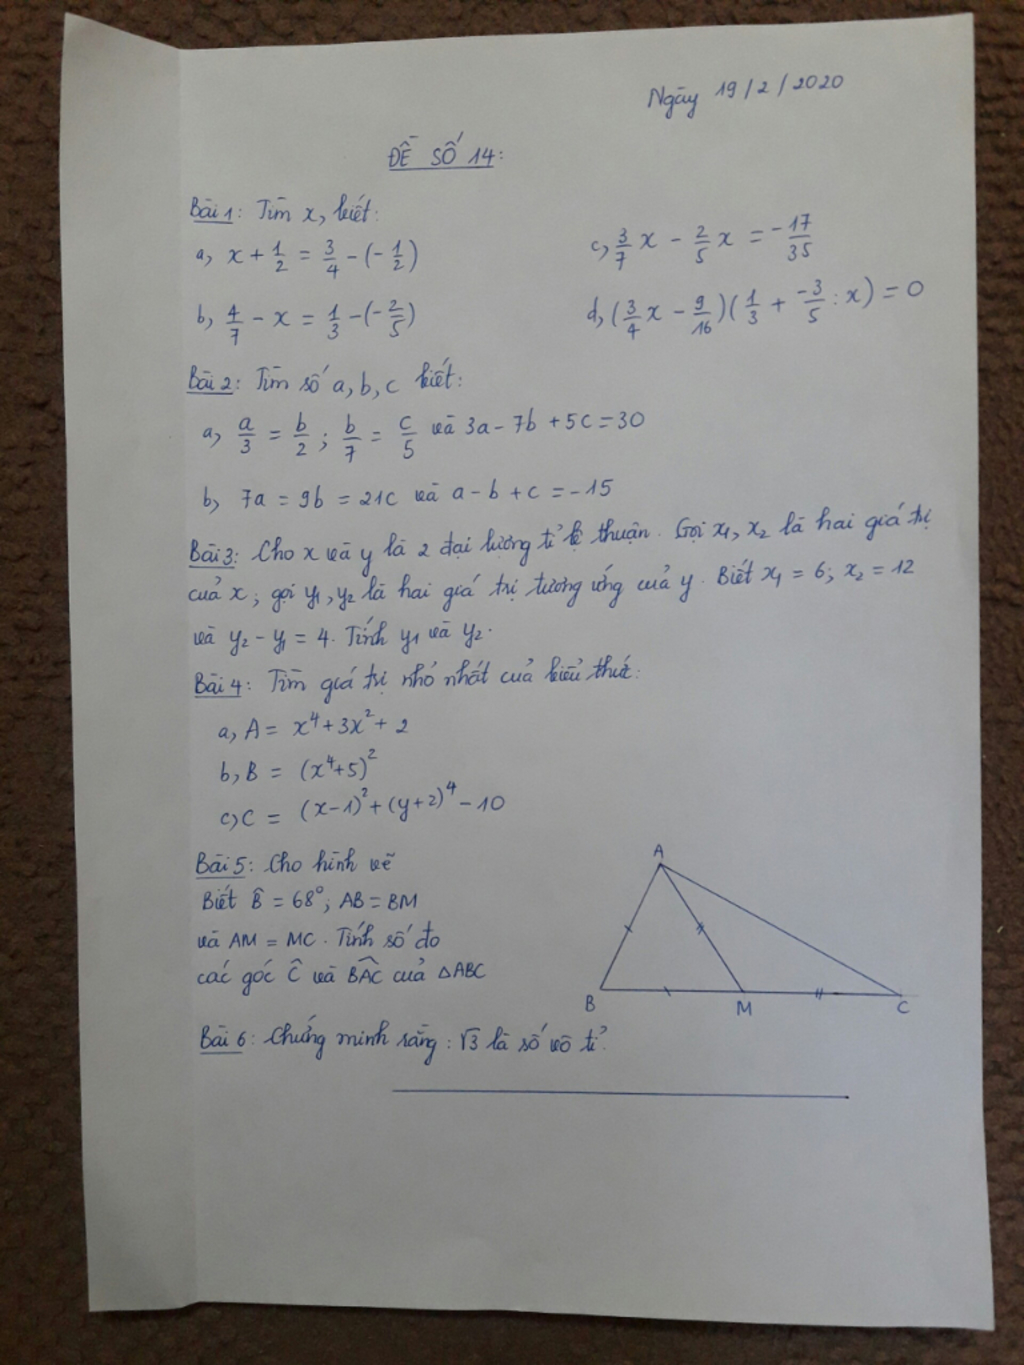 Ngày 19/2/2020
ĐỀ SỐ 14:
Bài 1: Tìm x, biết:
a, x + 1/2 = 3/4 - (-1/2)
c, 3/7 x - 2/5 x = -17/35
b, 4/7 - x = 1/3 - (-2/5)
d, (3/4 x - 9/16)(1/3 + -3/5 : x) = 0
Bài 2: Tìm số a, b, c biết:
a, a/3 = b/2 ; b/7 = c/5 và 3a - 7b + 5c = 30
b, 7a = 9b = 21c và a - b + c = -15
Bài 3: Cho x và y là 2 đại lượng tỉ lệ thuận. Gọi x₁, x₂ là hai giá trị
của x; gọi y₁, y₂ là hai giá trị tương ứng của y. Biết x₁ = 6; x₂ = 12
và y₂ - y₁ = 4. Tính y₁ và y₂.
Bài 4: Tìm giá trị nhỏ nhất của biểu thức:
a, A = x⁴ + 3x² + 2
b, B = (x⁴+5)²
c, C = (x-1)² + (y+2)⁴ - 10
Bài 5: Cho hình vẽ
Biết B̂ = 68°; AB = BM
và AM = MC. Tính số đo
các góc Ĉ và BÂC của ΔABC
A
B
M
C
Bài 6: Chứng minh rằng: √3 là số vô tỉ.